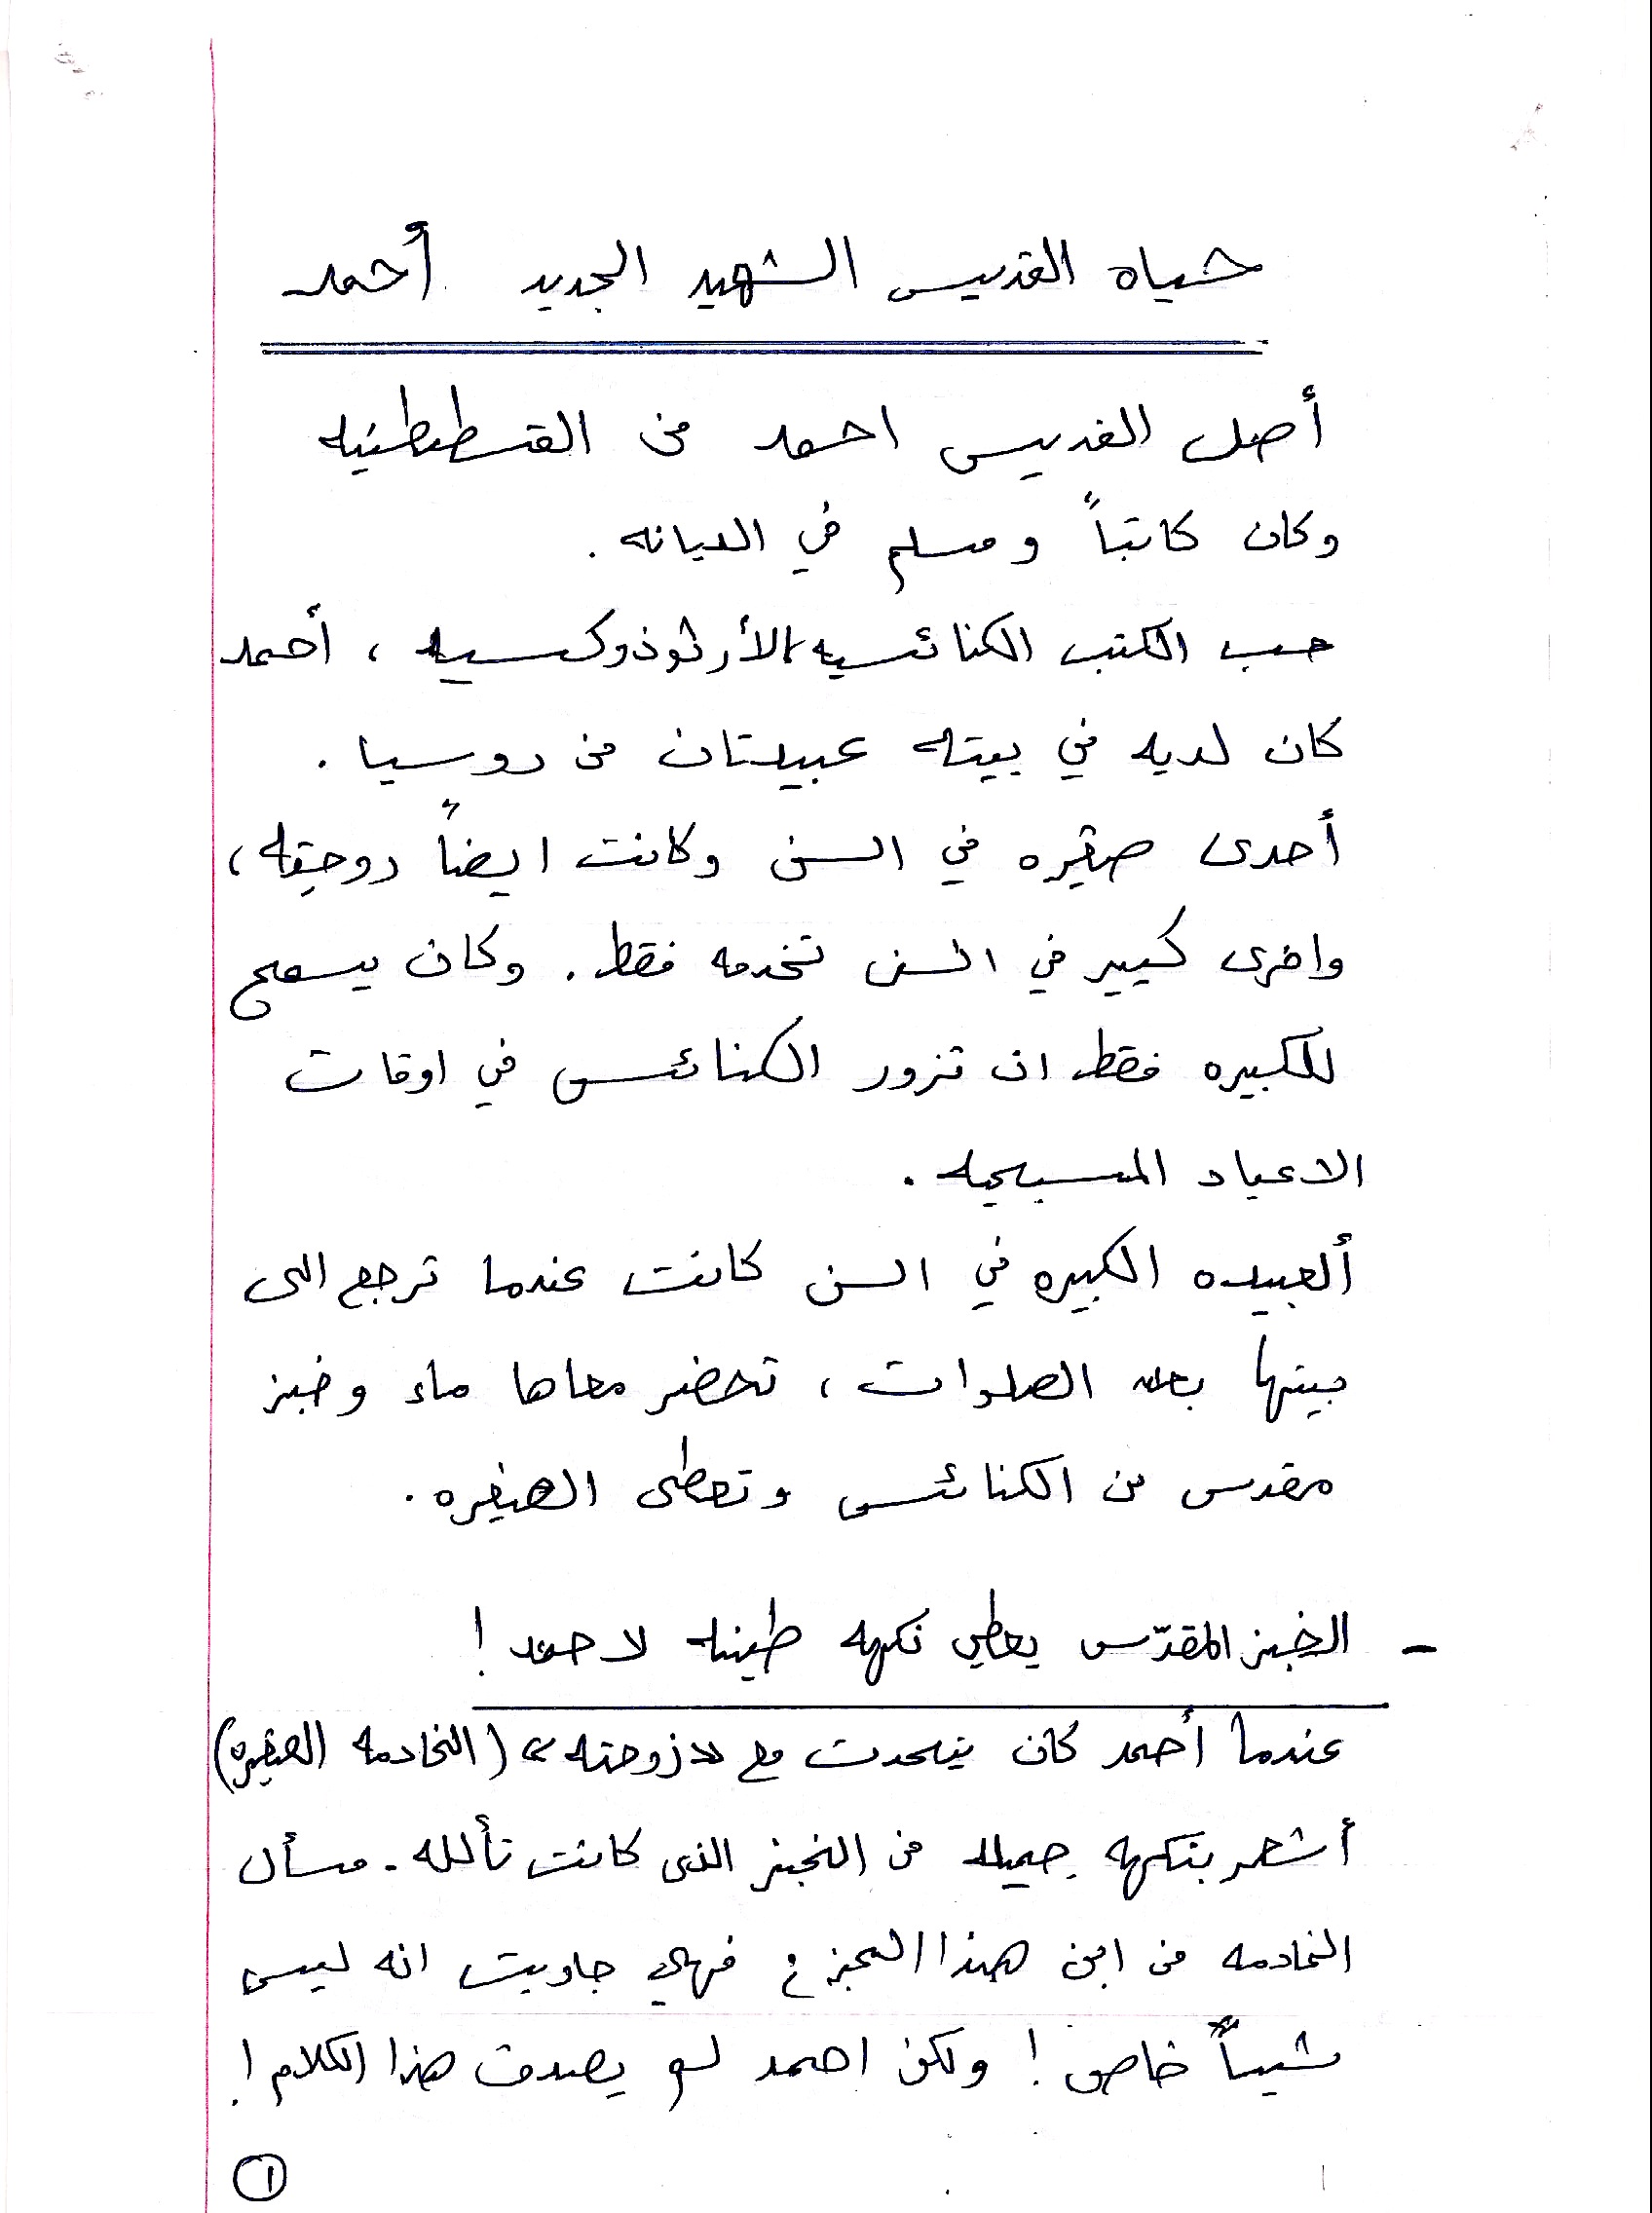 حياه القديس الشهيد الجديد أحمد
أصل القديس احمد من القسطنطنيه
وكان كاتباً ومسلم في الديانه .
حسب الكتب الكنائسيه الأرثوذوكسيه ، أحمد
كان لديه في بيته عبيدتان من روسيا .
أحدى صغيره في السن وكانت ايضاً زوجته ،
واخرى كبير في السن تخدمه فقط . وكان يسمح
للكبيره فقط ان تزور الكنائس في اوقات
الاعياد المسيحيه .
ألعبيده الكبيره في السن كانت عندما ترجع الى
بيتها بعد الصلوات ، تحضر معاها ماء وخبز
مقدس من الكنائس وتعطى الصغيره .
- الخبز المقدّس يعطي نكهه طيبه لاحمد !
عندما أحمد كان يتحدث مع « زوجته » ( الخادمه الصغيره )
أشعر بنكهه جميله من الخبز الذى كانت تأكله . فسأل
الخادمه من اين هذا الخبز ؟ فهي جاوبت انه ليس
شيئاً خاص ! ولكن احمد لم يصدق هذا الكلام !
١